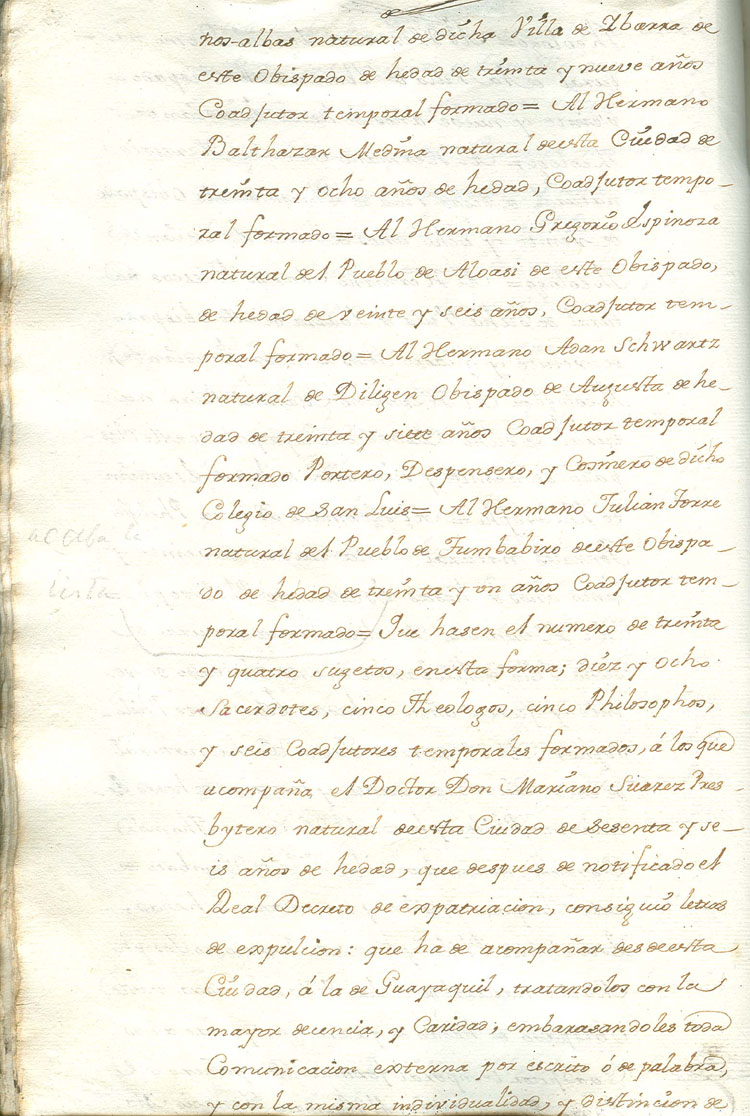 nos-albas natural de dicha Villa de Ybarra de
este Obispado de hedad de treinta y nueve años
Coadjutor temporal formado = Al Hermano
Balthazar Medina natural deesta Ciudad de
treinta y ocho años de hedad, Coadjutor tempo-
ral formado = Al Hermano Gregorio Espinoza
natural del Pueblo de Aloasi de este Obispado,
de hedad de veinte y seis años, Coadjutor tem-
poral formado = Al Hermano Adan Schwartz
natural de Diligen Obispado de Augusta de he-
dad de treinta y siete años Coadjutor temporal
formado Portero, Despensero, y Cosinero de dicho
Colegio de San Luis = Al Hermano Julian Torre
natural del Pueblo de Tumbabiro deeste Obispa-
acaba la
do de hedad de treinta y un años Coadjutor tem-
lista
poral formado = Que hasen el numero de treinta
y quatro sugetos, enesta forma; diez y ocho
Sacerdotes, cinco Theologos, cinco Philosophos,
y seis Coadjutores temporales formados, á los que
acompaña el Doctor Don Mariano Suarez Pres-
bytero natural deesta Ciudad de Sesenta y se-
is años de hedad, que despues de notificado el
Real Decreto de expatriacion, consiguió letras
de expulcion: que ha de acompañar desdeesta
Ciudad, á la de Guayaquil, tratandolos con la
mayor decencia, y Caridad; embarasandoles toda
Comunicacion externa por escrito ó de palabra,
y con la misma individualidad, y distincion de